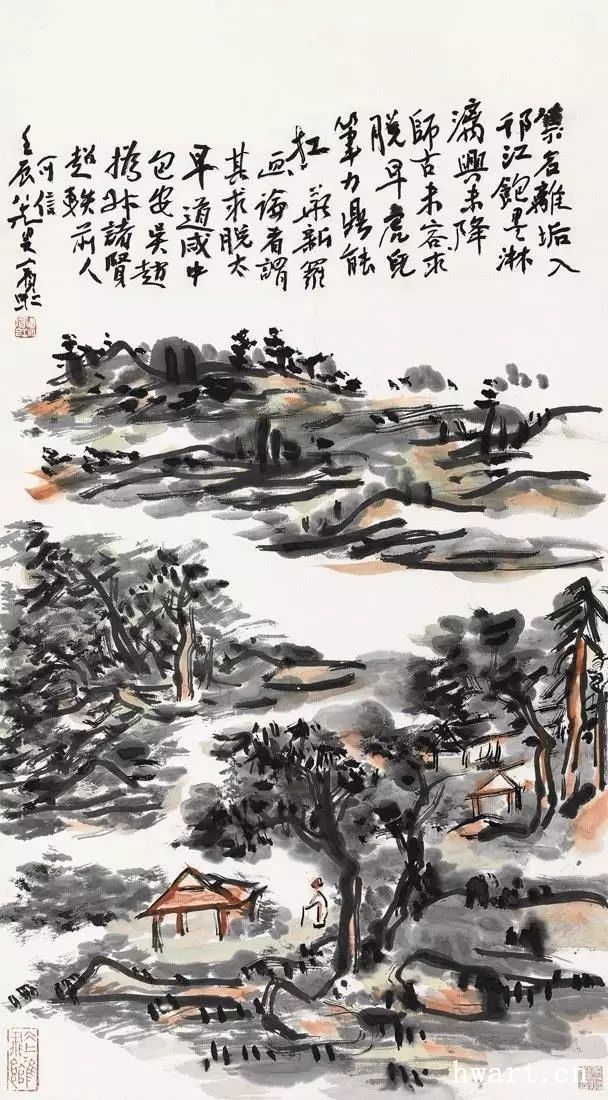 集名離垢入
邗江飽墨淋
漓興未降
師古未容求
脫早虎兒
筆力鼎能
扛 華新羅
畫論者謂
其求脫太
早道咸中
包安吳趙
撝叔諸賢
超軼前人
可信
壬辰 叟賓虹
hwart.cn